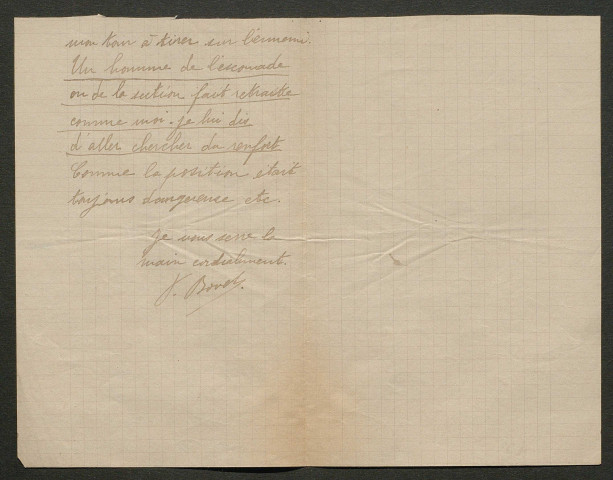 mon tour à tirer sur l'ennemi.
Un homme de l'escouade
ou de la section fait retraite
comme moi. je lui dis
d'aller chercher du renfort
Comme la position était
toujours dangereuse etc.
Je vous serre la
main cordialement.